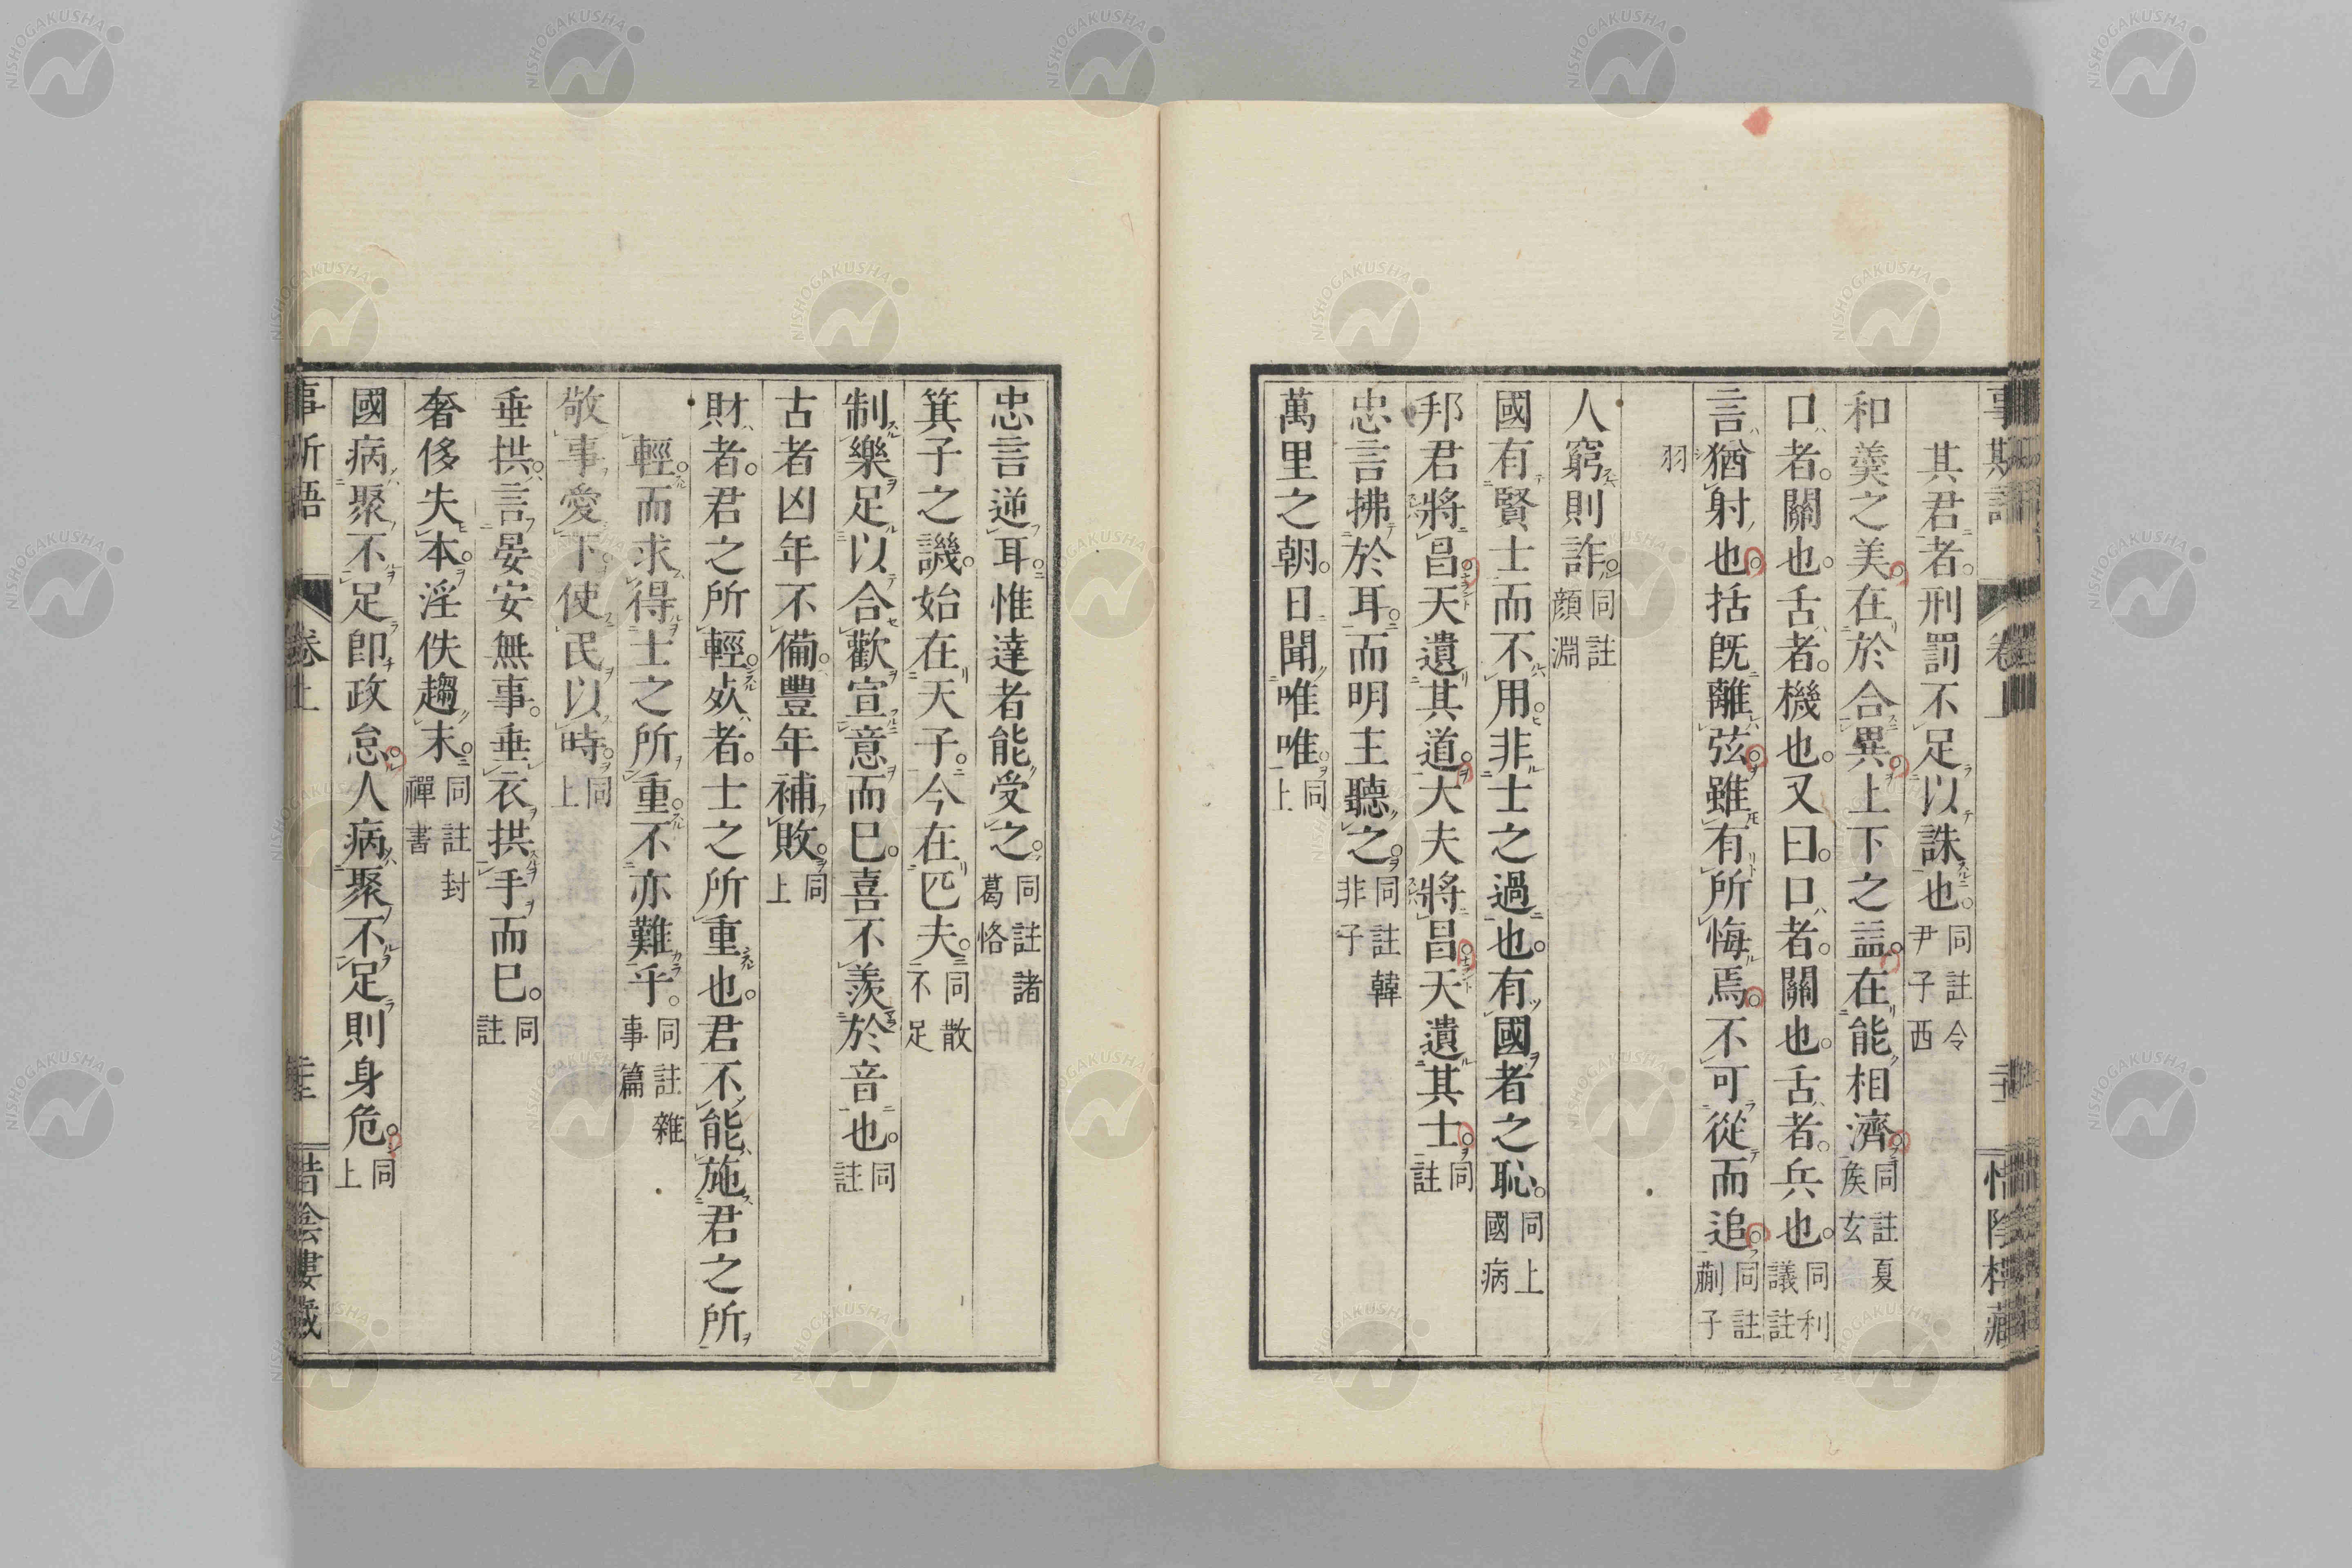 其君者。刑罰不足以誅也。同註令尹子西
和羹之美。在於合異。上下之益。在能相濟。同註夏矦玄
口者。關也。舌者。機也。又曰。口者。關也。舌者。兵也。同利議註
言猶射也。括旣離弦。雖有所悔焉。不可從而追。同註蒯子
羽
人窮則詐。同註顔淵
國有賢士而不用。非士之過也。有國者之恥。同上國病
邦君將昌。天遺其道。大夫將昌。天遺其士。同註
忠言拂於耳。而明主聽之。同註韓非子
萬里之朝。日聞唯唯。同上
忠言逆耳。惟達者能受之。同註諸葛恪
箕子之譏。始在天子。今在匹夫。同散不足
制樂足以合歡宣意而已。喜不羨於音也。同註
古者凶年不備。豐年補敗。同上
財者。君之所輕。死者。士之所重也。君不能施君之所
輕。而求得士之所重。不亦難乎。同註雜事篇
敬事愛下。使民以時。同上
垂拱。言晏安無事。垂衣拱手而已。同註
奢侈失本。淫佚趨末。同註封禪書
國病聚不足卽政怠。人病聚不足則身危。同上
卷上
NISHOGAKUSHA